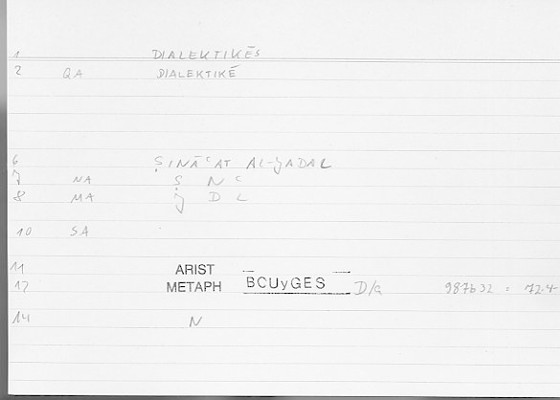 1 DIALEKTIKĒS
2 QA DIALEKTIKĒ
6 ṢINĀʿAT AL-ǦADAL
7 NA Ṣ N ʿ
8 MA Ǧ D L
10 SA
11 ARIST
12 METAPH BCUyGES D/a 987b32 = 72.4
14 N